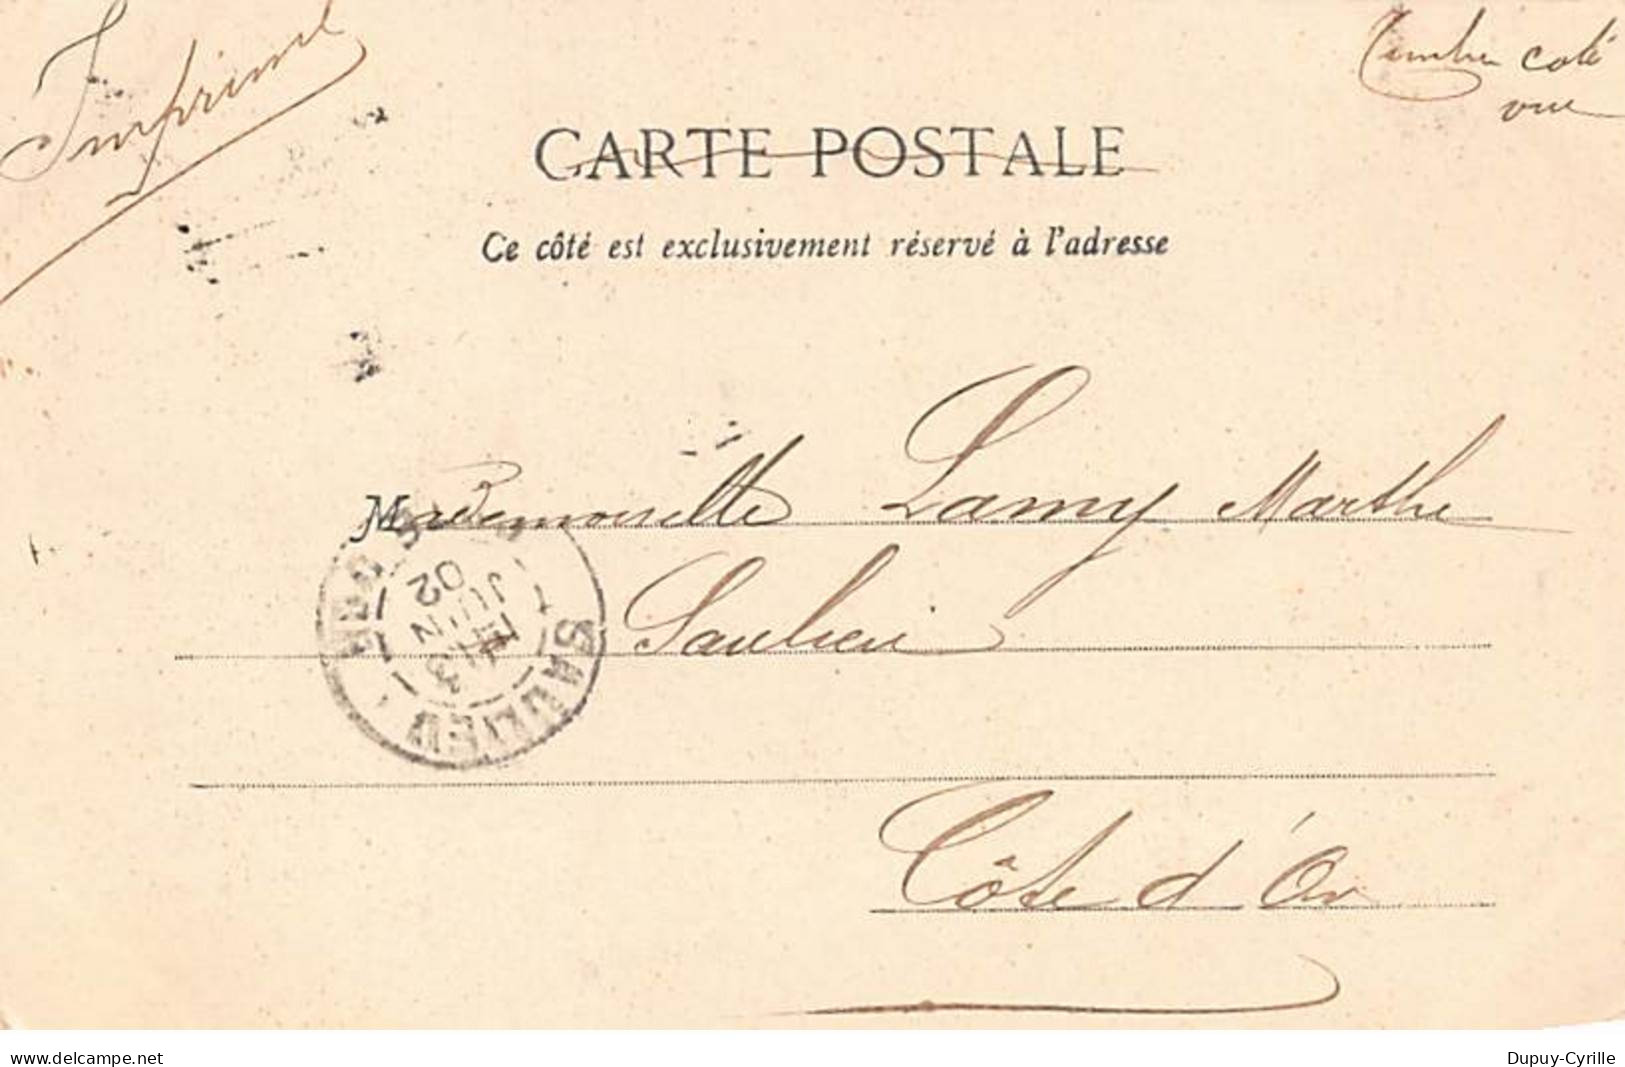 Imprimé
Timbre coté
vue
CARTE POSTALE
Ce côté est exclusivement réservé à l'adresse
Mademoiselle Lamy Marthe
Saulieu
SAULIEU
13
JUIN
02
Côte d'Or
www.delcampe.net
Dupuy-Cyrille